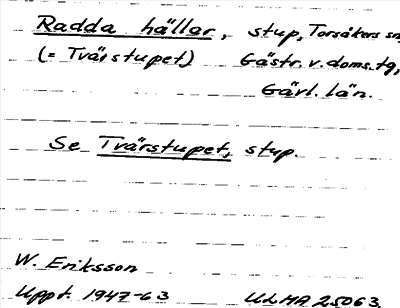 Radda hällar, stup, Torsåkers sn,
(= Tvärstupet) Gästr. v. doms. tg,
Gävl. län.
Se Tvärstupet, stup.
W. Eriksson
Uppt. 1947-63 ULMA 25063.